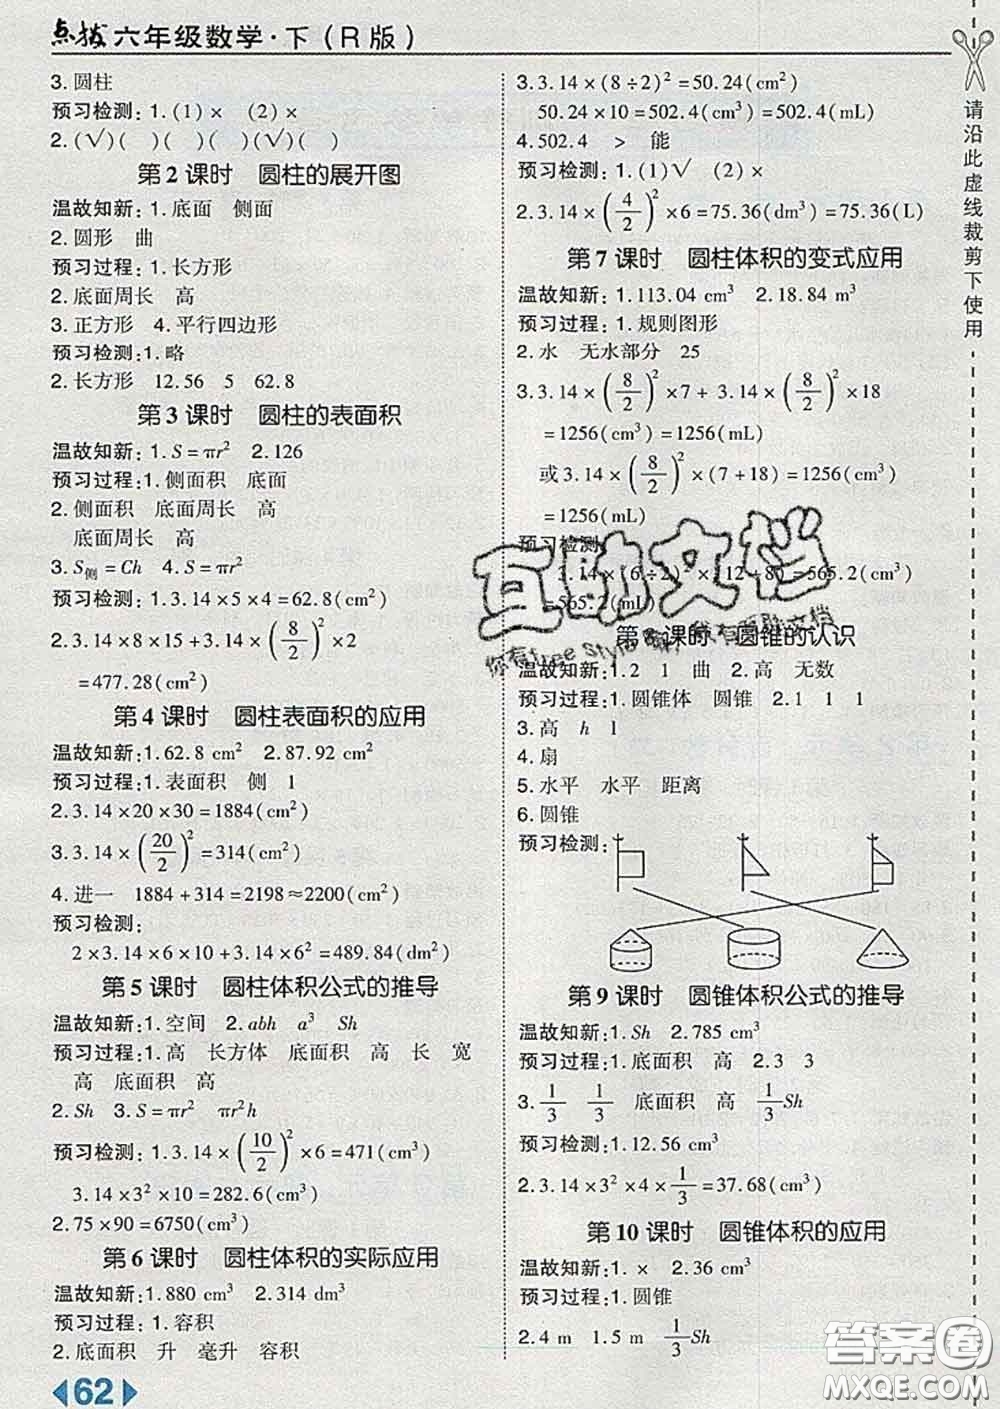 点拨 六年级数学·下(R版)
3.圆柱
预习检测:1.(1)× (2)×
2.(√)( )( )( )(√)( )
第2课时 圆柱的展开图
温故知新:1.底面 侧面
2.圆形 曲
预习过程:1.长方形
2.底面周长 高
3.正方形 4.平行四边形
预习检测:1.略
2.长方形 12.56 5 62.8
第3课时 圆柱的表面积
温故知新:1.S=πr² 2.126
预习过程:1.侧面积 底面
2.侧面积 底面周长 高
底面周长 高
3.S侧=Ch 4.S=πr²
预习检测:1.3.14×5×4=62.8(cm²)
2.3.14×8×15+3.14×(8/2)²×2
=477.28(cm²)
第4课时 圆柱表面积的应用
温故知新:1.62.8 cm² 2.87.92 cm²
预习过程:1.表面积 侧 1
2.3.14×20×30=1884(cm²)
3.3.14×(20/2)²=314(cm²)
4.进一 1884+314=2198≈2200(cm²)
预习检测:
2×3.14×6×10+3.14×6²=489.84(dm²)
第5课时 圆柱体积公式的推导
温故知新:1.空间 2.abh a³ Sh
预习过程:1.高 长方体 底面积 高 长 宽
高 底面积 高
2.Sh 3.S=πr² πr²h
预习检测:1.3.14×(10/2)²×6=471(cm³)
3.14×3²×10=282.6(cm³)
2.75×90=6750(cm³)
第6课时 圆柱体积的实际应用
温故知新:1.880 cm³ 2.314 dm³
预习过程:1.容积
2.底面积 升 毫升 容积
62
3.3.14×(8÷2)²=50.24(cm²)
50.24×10=502.4(cm³)=502.4(mL)
4.502.4 > 能
预习检测:1.(1)√ (2)×
2.3.14×(4/2)²×6=75.36(dm³)=75.36(L)
第7课时 圆柱体积的变式应用
温故知新:1.113.04 cm³ 2.18.84 m³
预习过程:1.规则图形
2.水 无水部分 25
3.3.14×(8/2)²×7+3.14×(8/2)²×18
=1256(cm³)=1256(mL)
或3.14×(8/2)²×(7+18)=1256(cm³)
=1256(mL)
预习检测:
3.14×(6÷2)²×(12+8)=565.2(cm³)
=565.2(mL)
互助文档
你有free Style吗，我有互助文档
第8课时 圆锥的认识
温故知新:1.2 1 曲 2.高 无数
预习过程:1.圆锥体 圆锥 2.1 1 1
3.高 h 1
4.扇
5.水平 水平 距离
6.圆锥
预习检测:
第9课时 圆锥体积公式的推导
温故知新:1.Sh 2.785 cm³
预习过程:1.底面积 高 2.3 3
3.1/3 1/3 底面积 高 1/3Sh
预习检测:1.12.56 cm³
2.3.14×3²×4×1/3=37.68(cm³)
第10课时 圆锥体积的应用
温故知新:1.× 2.36 cm³
预习过程:1.圆锥
2.4 m 1.5 m 1/3Sh
请沿此虚线裁剪下使用
答案圈
MXQE.COM